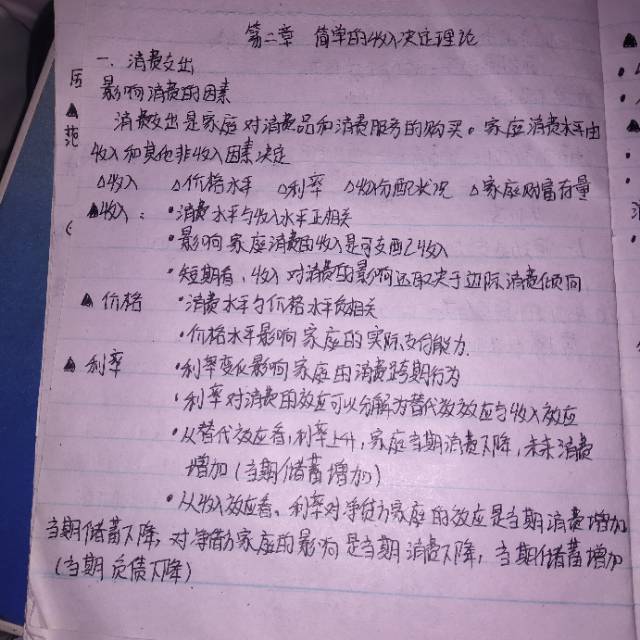 第二章 简单的收入决定理论
一、消费支出
影响消费的因素
消费支出是家庭对消费品和消费服务的购买。家庭消费水平由
收入和其他非收入因素决定
△收入 △价格水平 △利率 △收入分配状况 △家庭财富存量
▲收入: ·消费水平与收入水平正相关
·影响家庭消费的收入是可支配收入
·短期看,收入对消费的影响还取决于边际消费倾向
▲价格 ·消费水平与价格水平负相关
·价格水平影响家庭的实际支付能力.
▲利率 ·利率变化影响家庭的消费跨期行为
·利率对消费的效应可以分解为替代效应与收入效应
·从替代效应看,利率上升,家庭当期消费下降,未来消费
增加(当期储蓄增加)
·从收入效应看、利率对净贷方家庭的效应是当期消费增加
当期储蓄下降,对净借方家庭的影响是当期消费下降,当期储蓄增加
(当期负债下降)